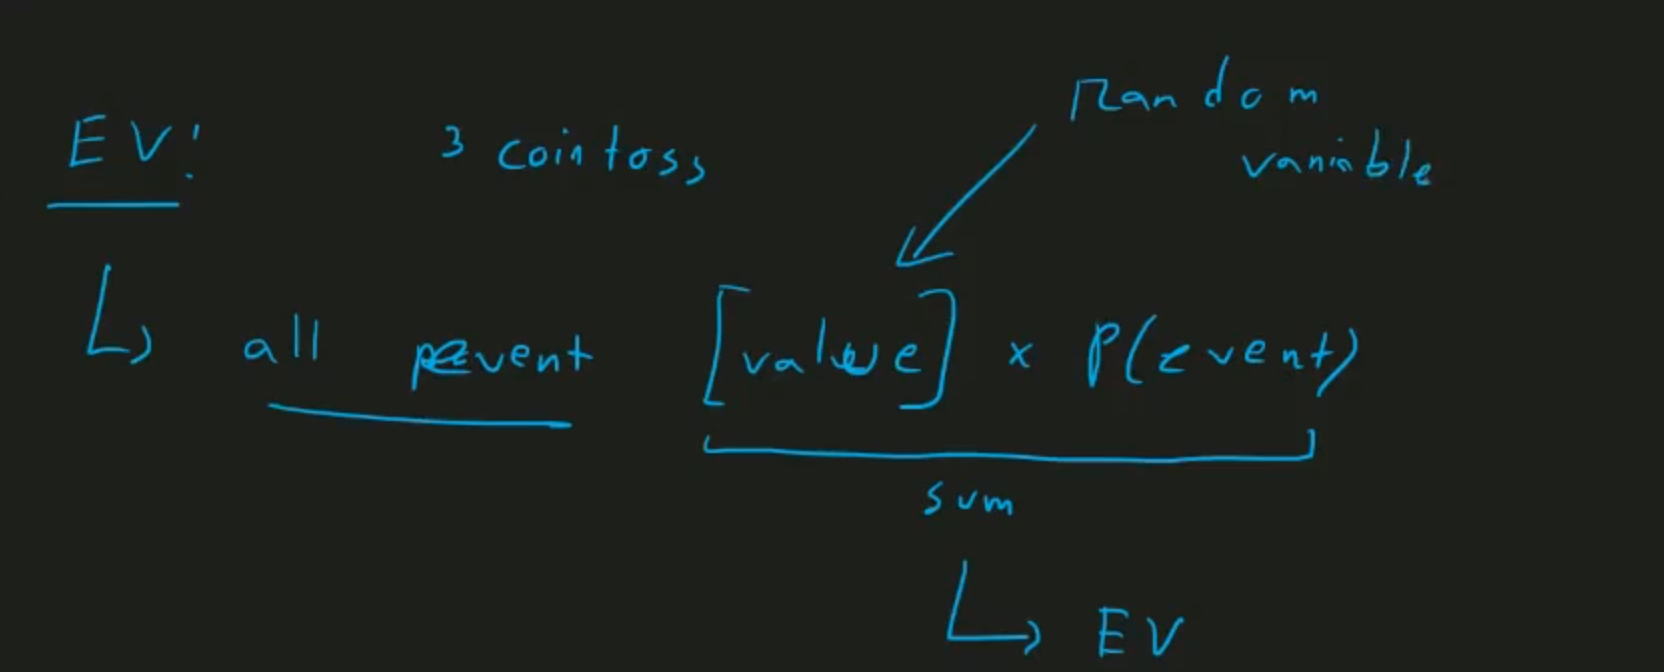 EV!
3 cointoss
Random
variable
all event [value] x P(event)
sum
EV